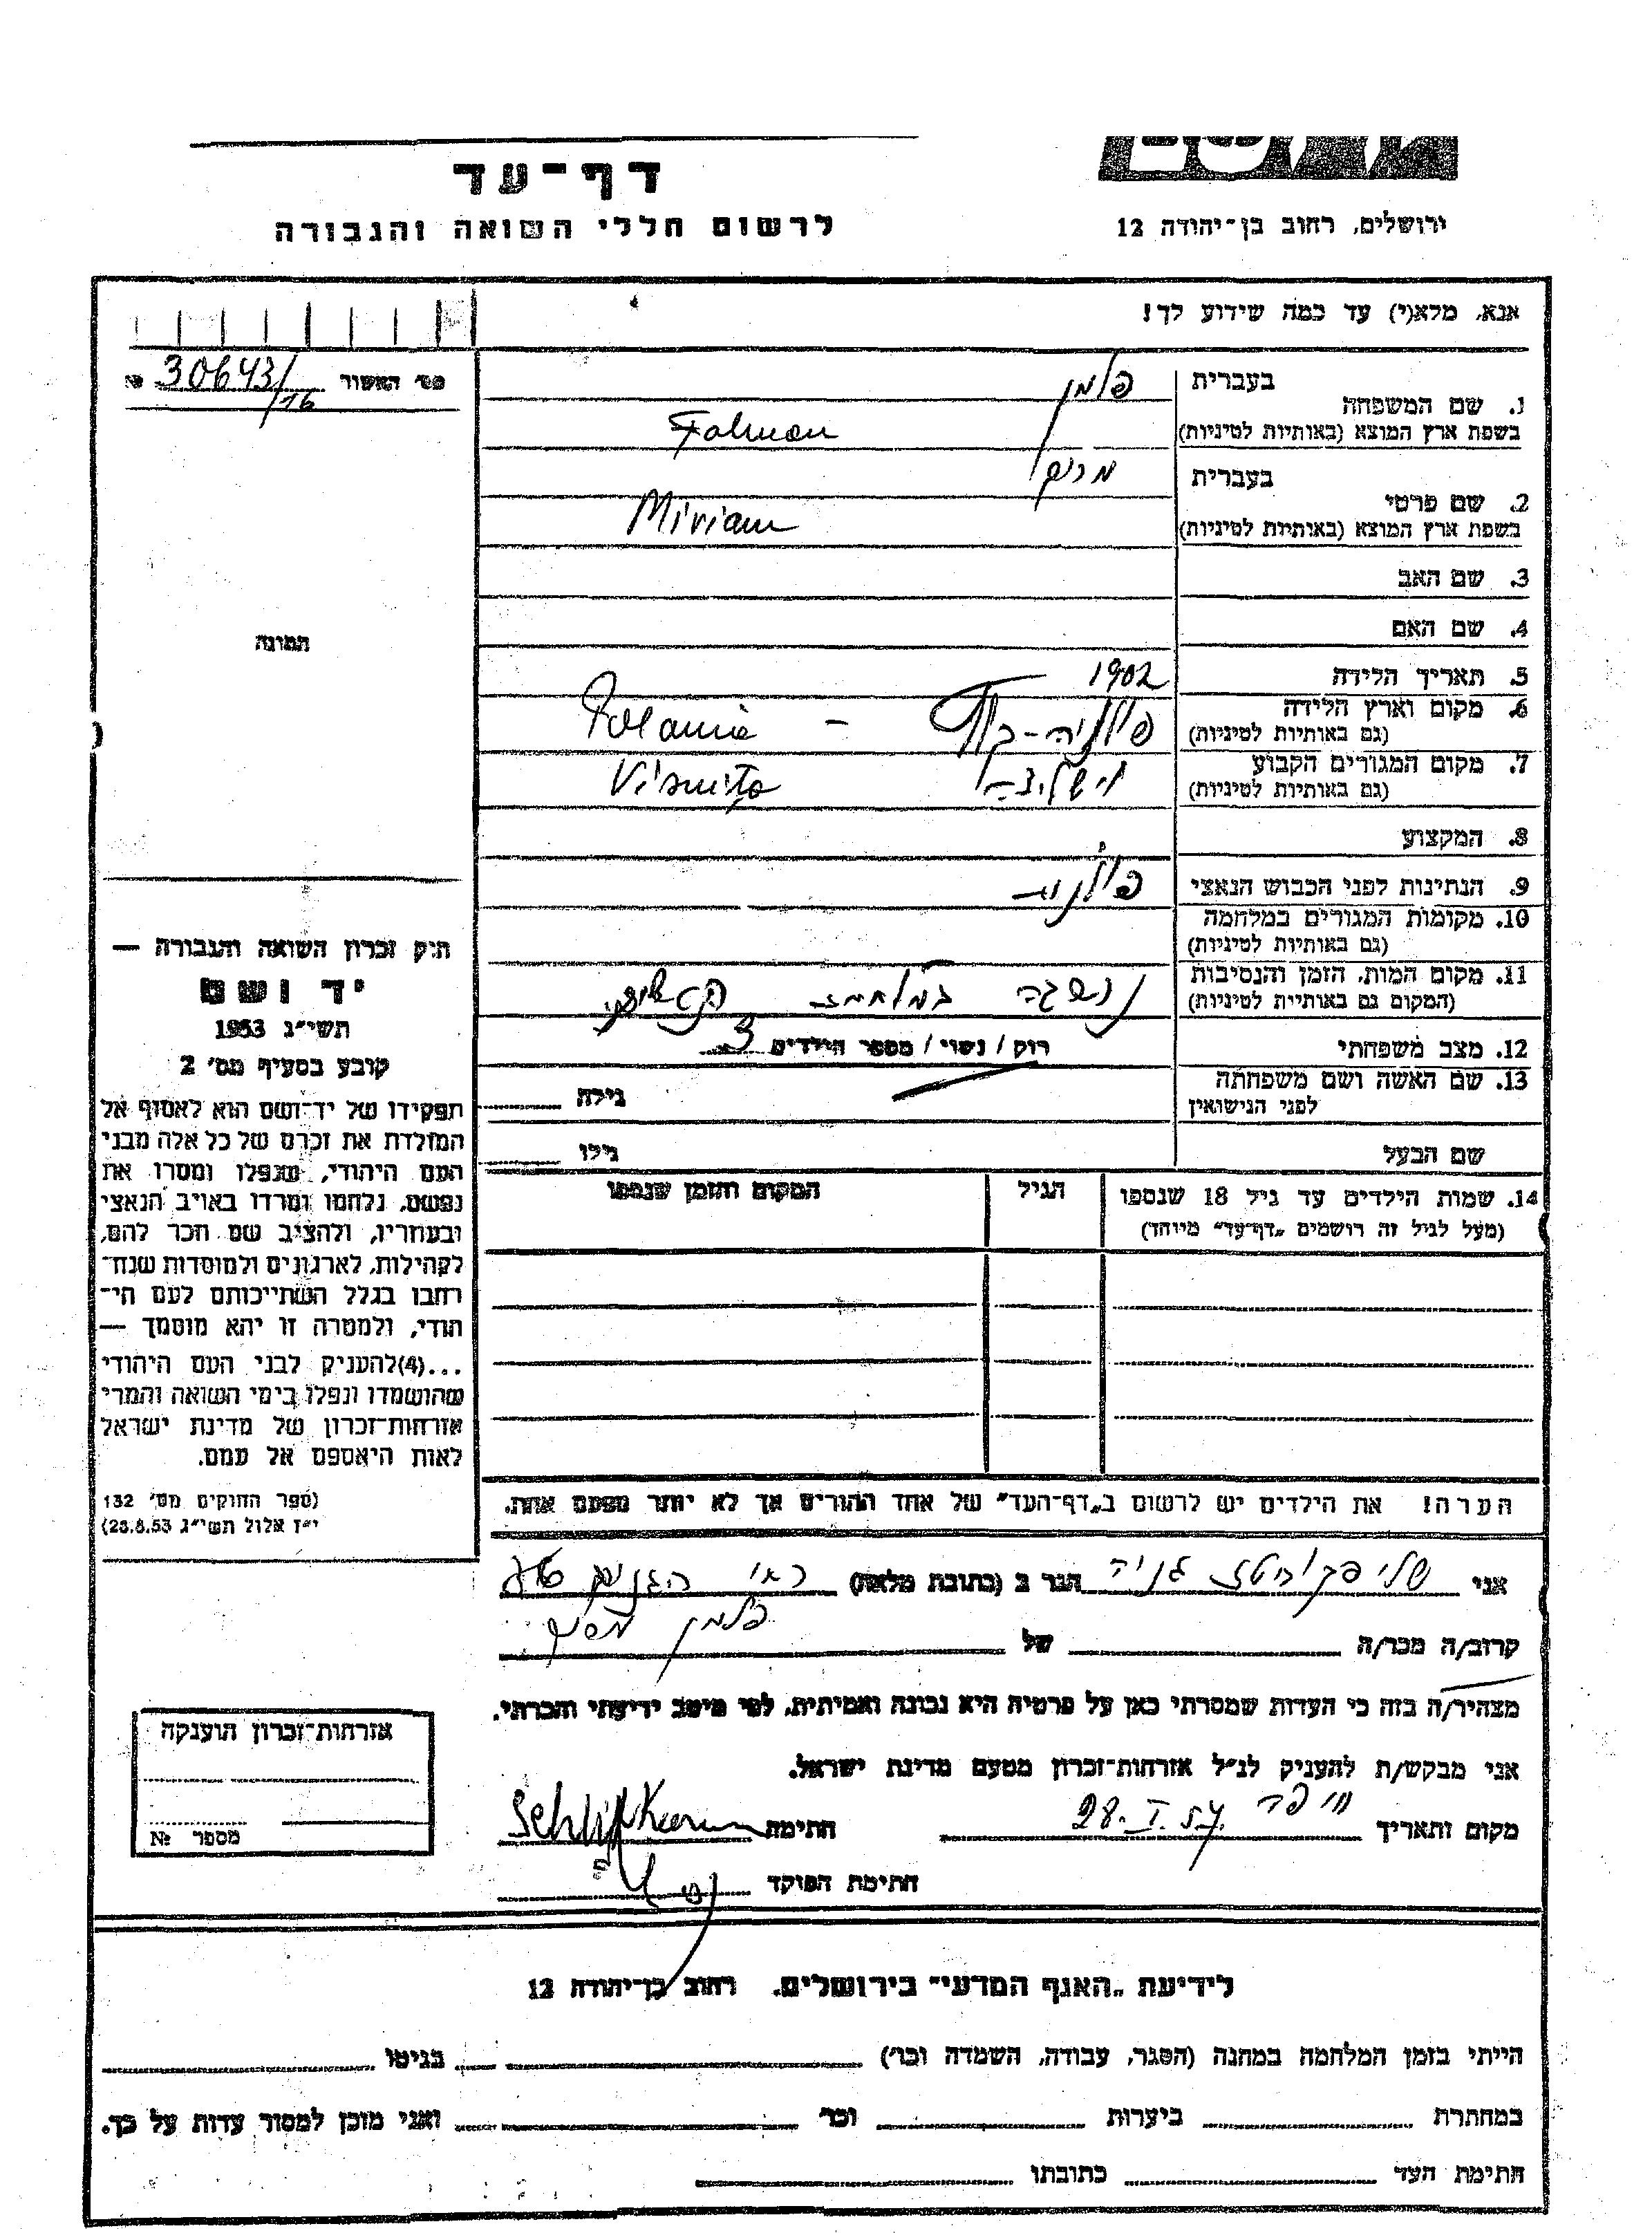 דף־עד
לרשום חללי השואה והגבורה
ירושלים, רחוב בן־יהודה 12
אנא, מלא(י) עד כמה שידוע לך!
מס׳ האשור 30643/16 №
בעברית פלמן
1. שם המשפחה
בשפת ארץ המוצא (באותיות לטיניות) Falman
בעברית מרים
2. שם פרטי
בשפת ארץ המוצא (באותיות לטיניות) Miriam
3. שם האב
4. שם האם
התמונה
5. תאריך הלידה 1902
6. מקום וארץ הלידה
(גם באותיות לטיניות) פולניה - Polania
7. מקום המגורים הקבוע
(גם באותיות לטיניות) Visnita
8. המקצוע
9. הנתינות לפני הכבוש הנאצי פולנית
10. מקומות המגורים במלחמה
(גם באותיות לטיניות)
11. מקום המות, הזמן והנסיבות
(המקום גם באותיות לטיניות) נספה במלחמת
12. מצב משפחתי רוק / נשוי / מספר הילדים 3
13. שם האשה ושם משפחתה
לפני הנישואין גילה
שם הבעל גילו
14. שמות הילדים עד גיל 18 שנספו הגיל המקום והזמן שנספו
(מעל לגיל זה רושמים „דף־עד" מיוחד)
חוק זכרון השואה והגבורה —
יד ושם
תשי״ג 1953
קובע בסעיף מס׳ 2
תפקידו של יד־ושם הוא לאסוף אל
המולדת את זכרם של כל אלה מבני
העם היהודי, שנפלו ומסרו את
נפשם, נלחמו ומרדו באויב הנאצי
ובעוזריו, ולהציב שם וזכר להם,
לקהילות, לארגונים ולמוסדות שנח־
רבו בגלל השתייכותם לעם הי־
הודי, ולמטרה זו יהא מוסמך —
...(4)להעניק לבני העם היהודי
שהושמדו ונפלו בימי השואה והמרי
אזרחות־זכרון של מדינת ישראל
לאות היאספם אל עמם.
(ספר החוקים מס׳ 132
י״ז אלול תשי״ג 28.8.53)
הערה! את הילדים יש לרשום ב„דף־העד" של אחד ההורים אך לא יותר מפעם אחת.
אני הגר ב (כתובת מלאה)
קרוב/ה מכר/ה של פלמן מרים
מצהיר/ה בזה כי העדות שמסרתי כאן על פרטיה היא נכונה ואמיתית, לפי מיטב ידיעתי והכרתי.
אני מבקש/ת להעניק לנ״ל אזרחות־זכרון מטעם מדינת ישראל.
מקום ותאריך חיפה 28.I.57. חתימה
חתימת הפוקד
אזרחות־זכרון הוענקה
מספר №
לידיעת „האגף המדעי" בירושלים. רחוב בן־יהודה 12
הייתי בזמן המלחמה במחנה (הסגר, עבודה, השמדה וכו׳) בגיטו
במחתרת ביערות וכו׳ ואני מוכן למסור עדות על כך.
חתימת העד כתובתו